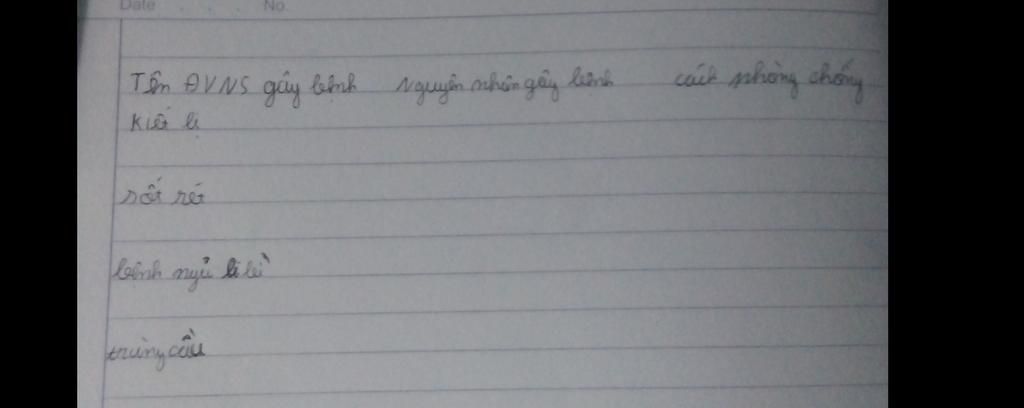 Date No.
Tên ĐVNS gây bệnh nguyên nhân gây bệnh cách phòng chống
Kiết lị
sốt rét
bệnh ngủ li bì
trùng cầu